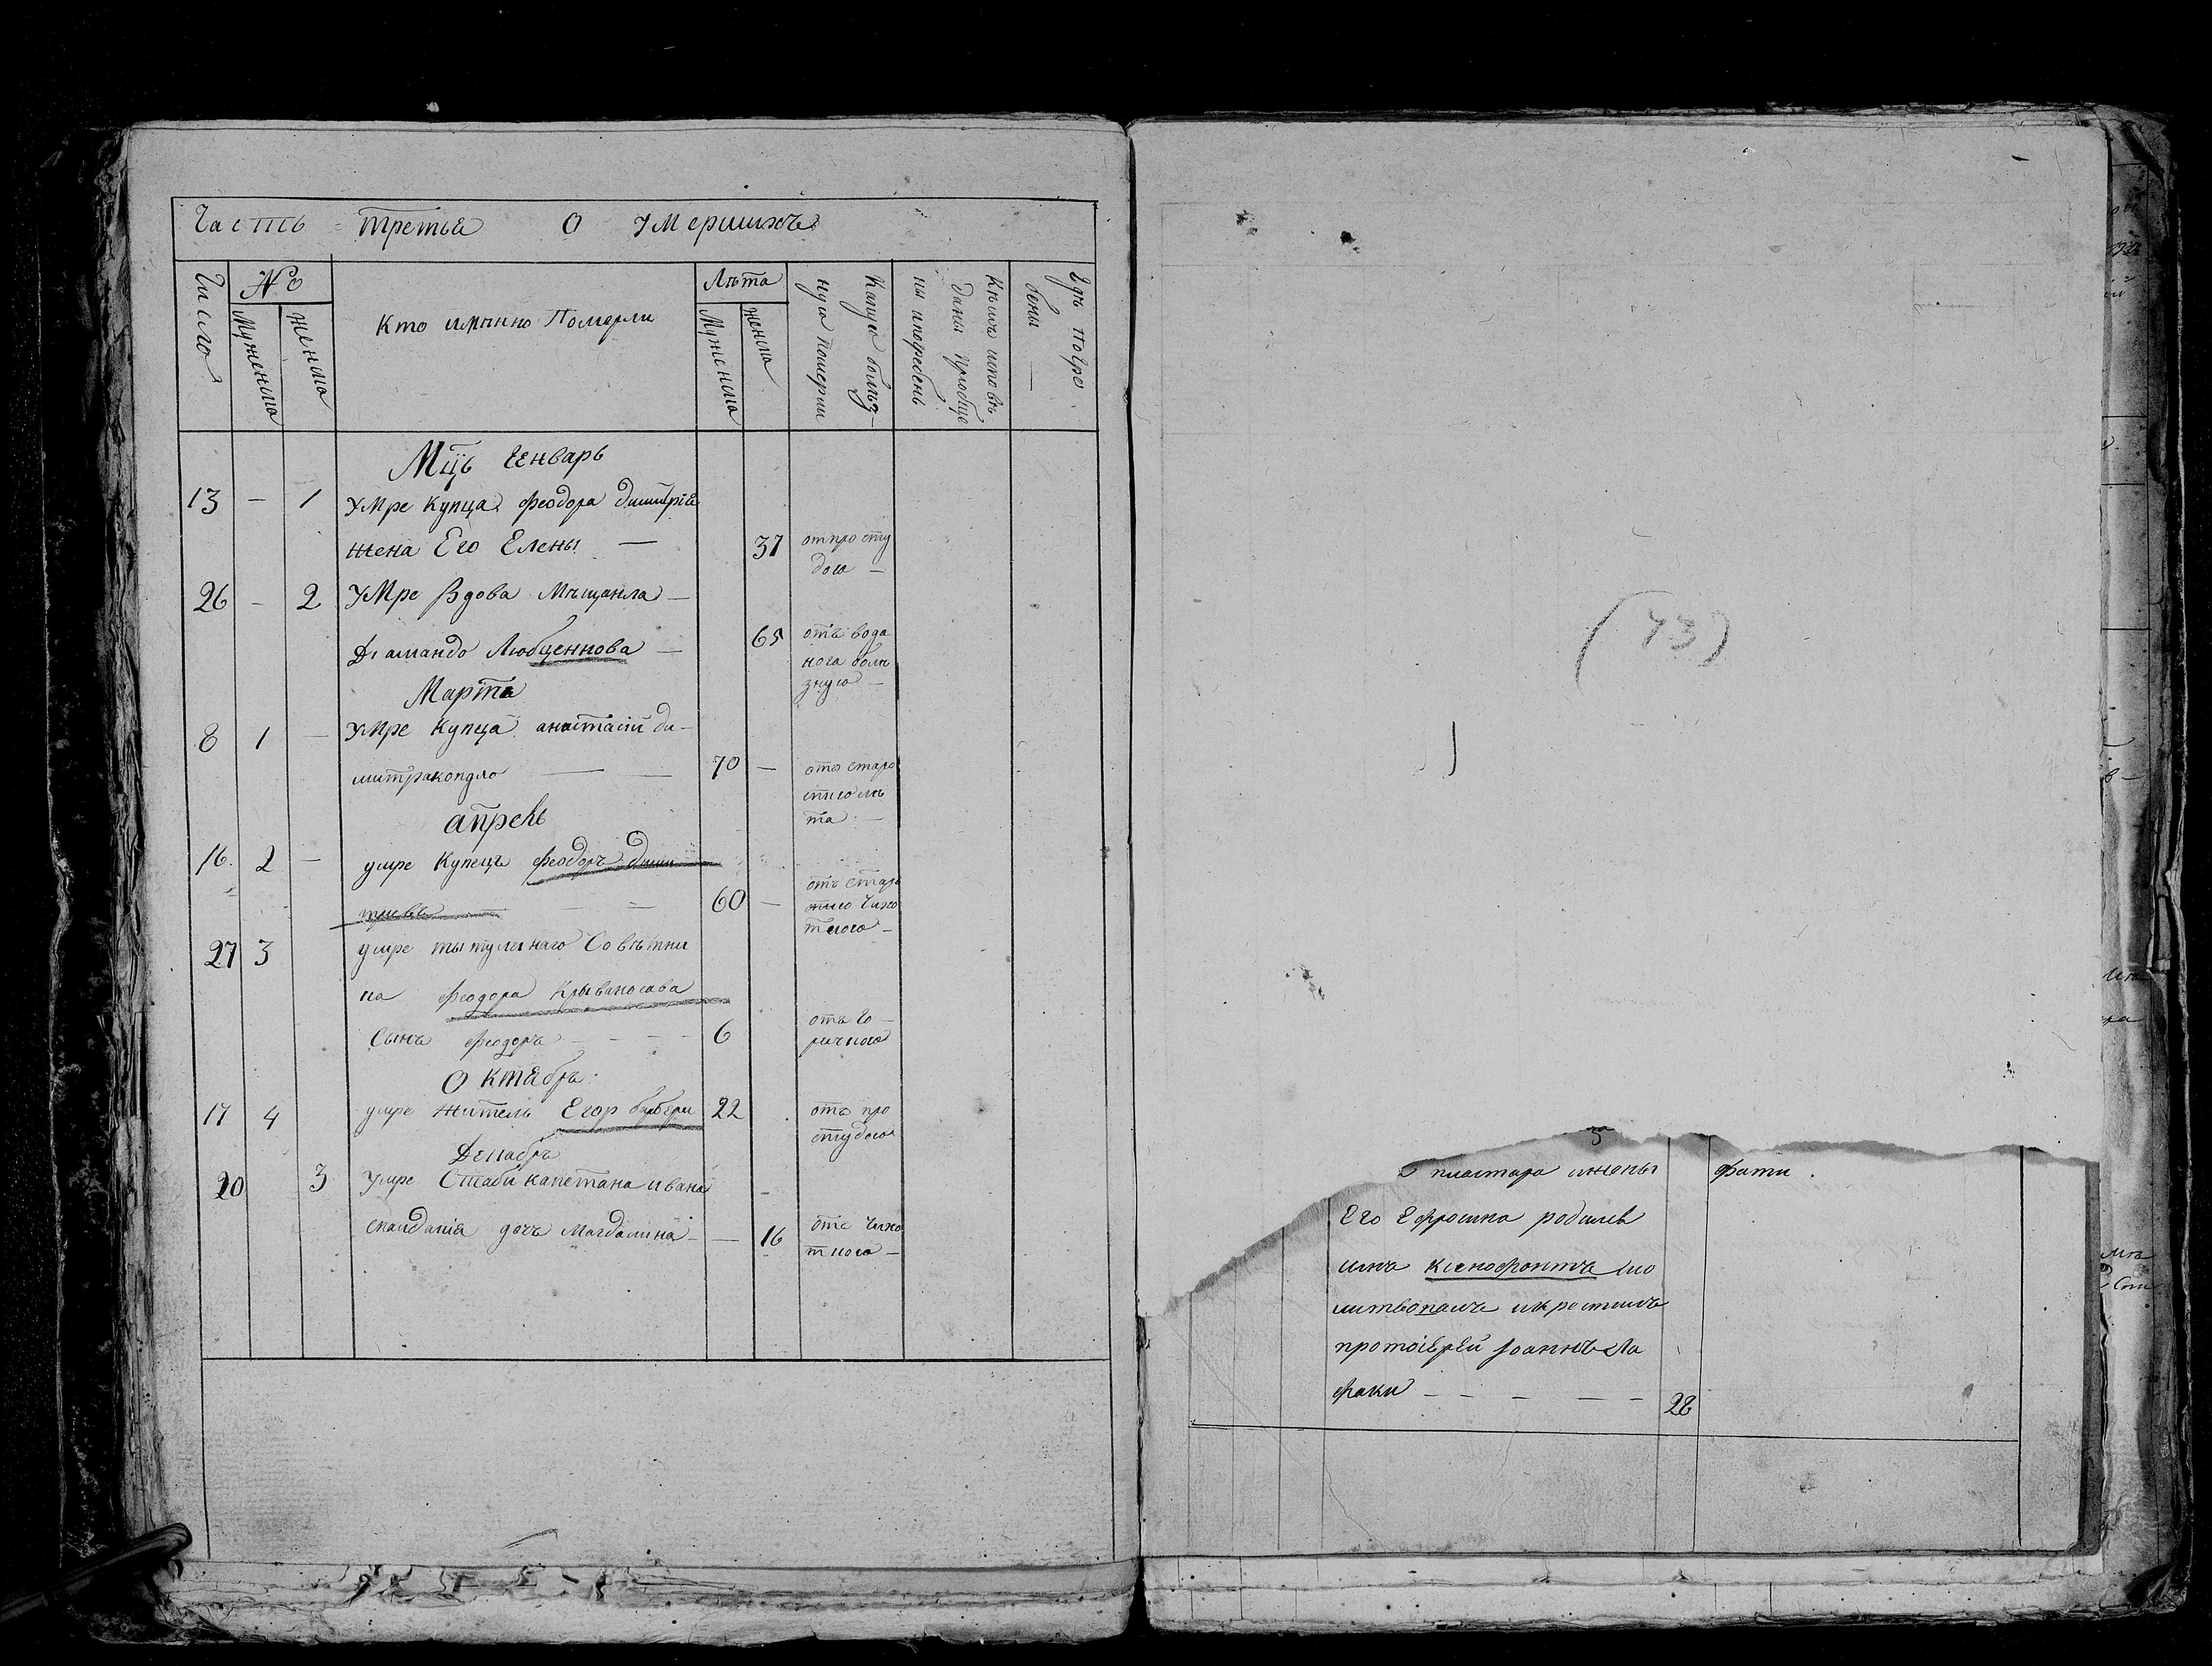 Часть третья О Умершихъ
Число
№
Мужеска
Женска
Кто имянно Померли
Лѣта
Мужеска
Женска
Какую болѣз-
ною померли
Кѣмъ исповѣ
даны приобще
ны и погребены
Гдѣ погре
бены —
Мць Генварь
13 — 1 Умре Купца Феодора Димитрія
жена Его Елены — 37 от просту
дою —
26 — 2 Умре Вдова Мѣщанка —
Діамандо Любценкова — 65 отъ водя
ною болѣ
зную —
Марта
8 1 — Умре Купца анастасій ди-
митракопдло — — 70 — отъ старо
стию лѣ
та —
апрель
16. 2 — умре Купецъ Феодоръ Дими
триевъ — — 60 — отъ стар
чихо
ткою —
27 3 умре тытулярнаго Совѣтни
ка Феодора Крываносава
Сынъ Феодоръ - - - - 6 отъ го-
рячкою
Октябрь
17 4 умре житель Егор барбери 22 отъ про
студою
Декабрь
20 3 Умре Стаби капетана ивана
скандалія дочъ Магдалина - — 16 отъ чихо
ткою —
(43)
пластара ижены фати.
Его Ефросина родился
сынъ ксенофонтъ
литвовалъ икрестилъ
протоіерей Іоаннъ Ла
факи - - - - - 28